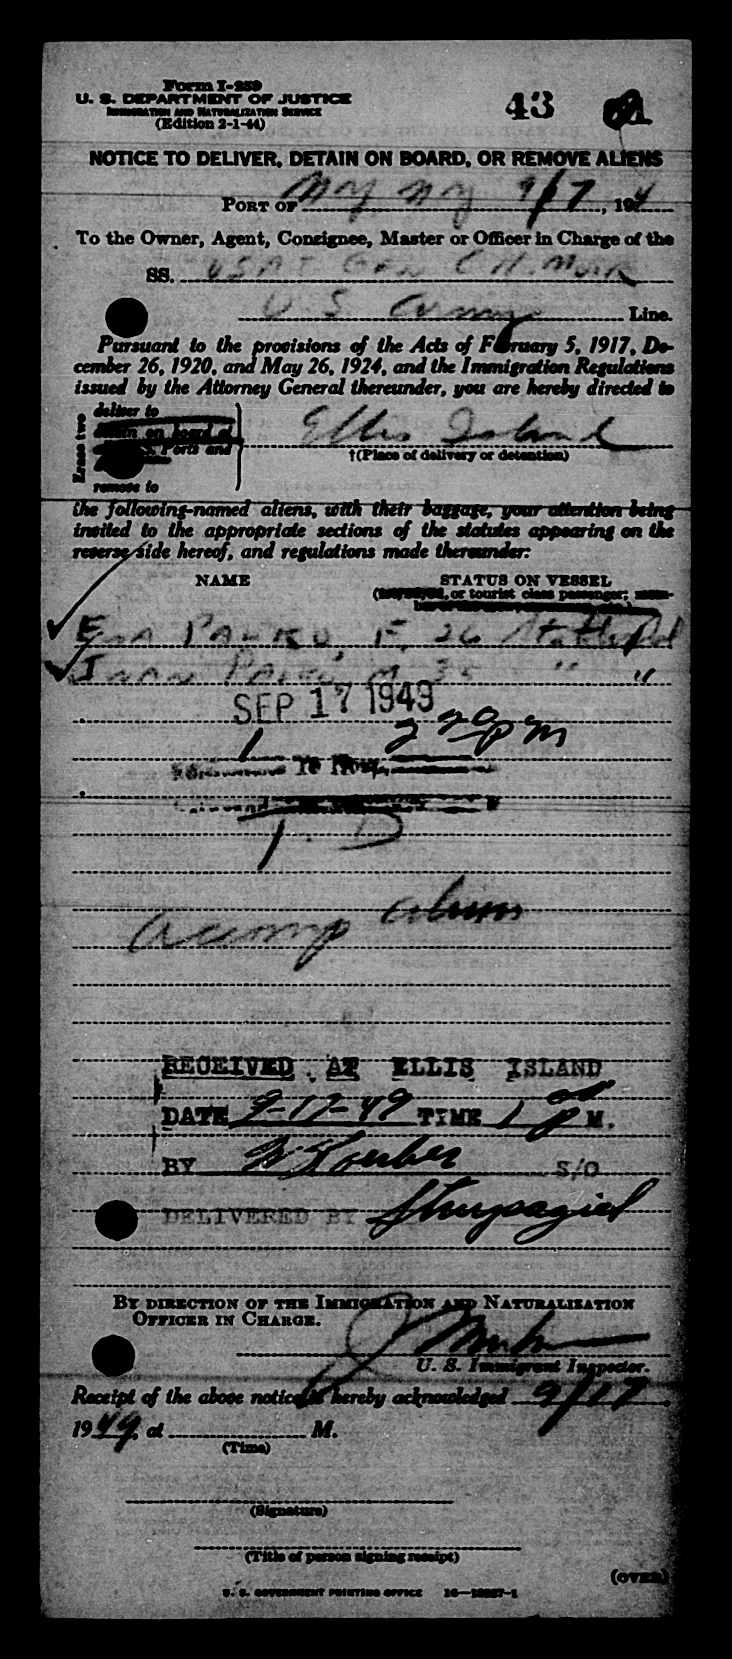 Form I-259
U. S. DEPARTMENT OF JUSTICE
IMMIGRATION AND NATURALIZATION SERVICE
(Edition 2-1-44)
43
NOTICE TO DELIVER, DETAIN ON BOARD, OR REMOVE ALIENS
PORT OF NY NY 9/17, 194
To the Owner, Agent, Consignee, Master or Officer in Charge of the
SS. USAT Gen C H. Muir
U S Army Line.
Pursuant to the provisions of the Acts of February 5, 1917, De-
cember 26, 1920, and May 26, 1924, and the Immigration Regulations
issued by the Attorney General thereunder, you are hereby directed to
Erase two
deliver to
detain on board at
Ports and
remove to
Ellis Island
†(Place of delivery or detention)
the following-named aliens, with their baggage, your attention being
invited to the appropriate sections of the statutes appearing on the
reverse side hereof, and regulations made thereunder:
NAME STATUS ON VESSEL
, or tourist class passenger;
F. 26
M 35 " "
SEP 17 1949
2 20 pm
To
T. D
Accomp alien
RECEIVED AT ELLIS ISLAND
DATE 9-17-49 TIME 1 PM.
BY W Koerber S/O
DELIVERED BY
BY DIRECTION OF THE IMMIGRATION AND NATURALIZATION
OFFICER IN CHARGE.
U. S. Immigrant Inspector.
Receipt of the above notice is hereby acknowledged 9/17
1949, at M.
(Time)
(Signature)
(Title of person signing receipt)
(OVER)
U. S. GOVERNMENT PRINTING OFFICE